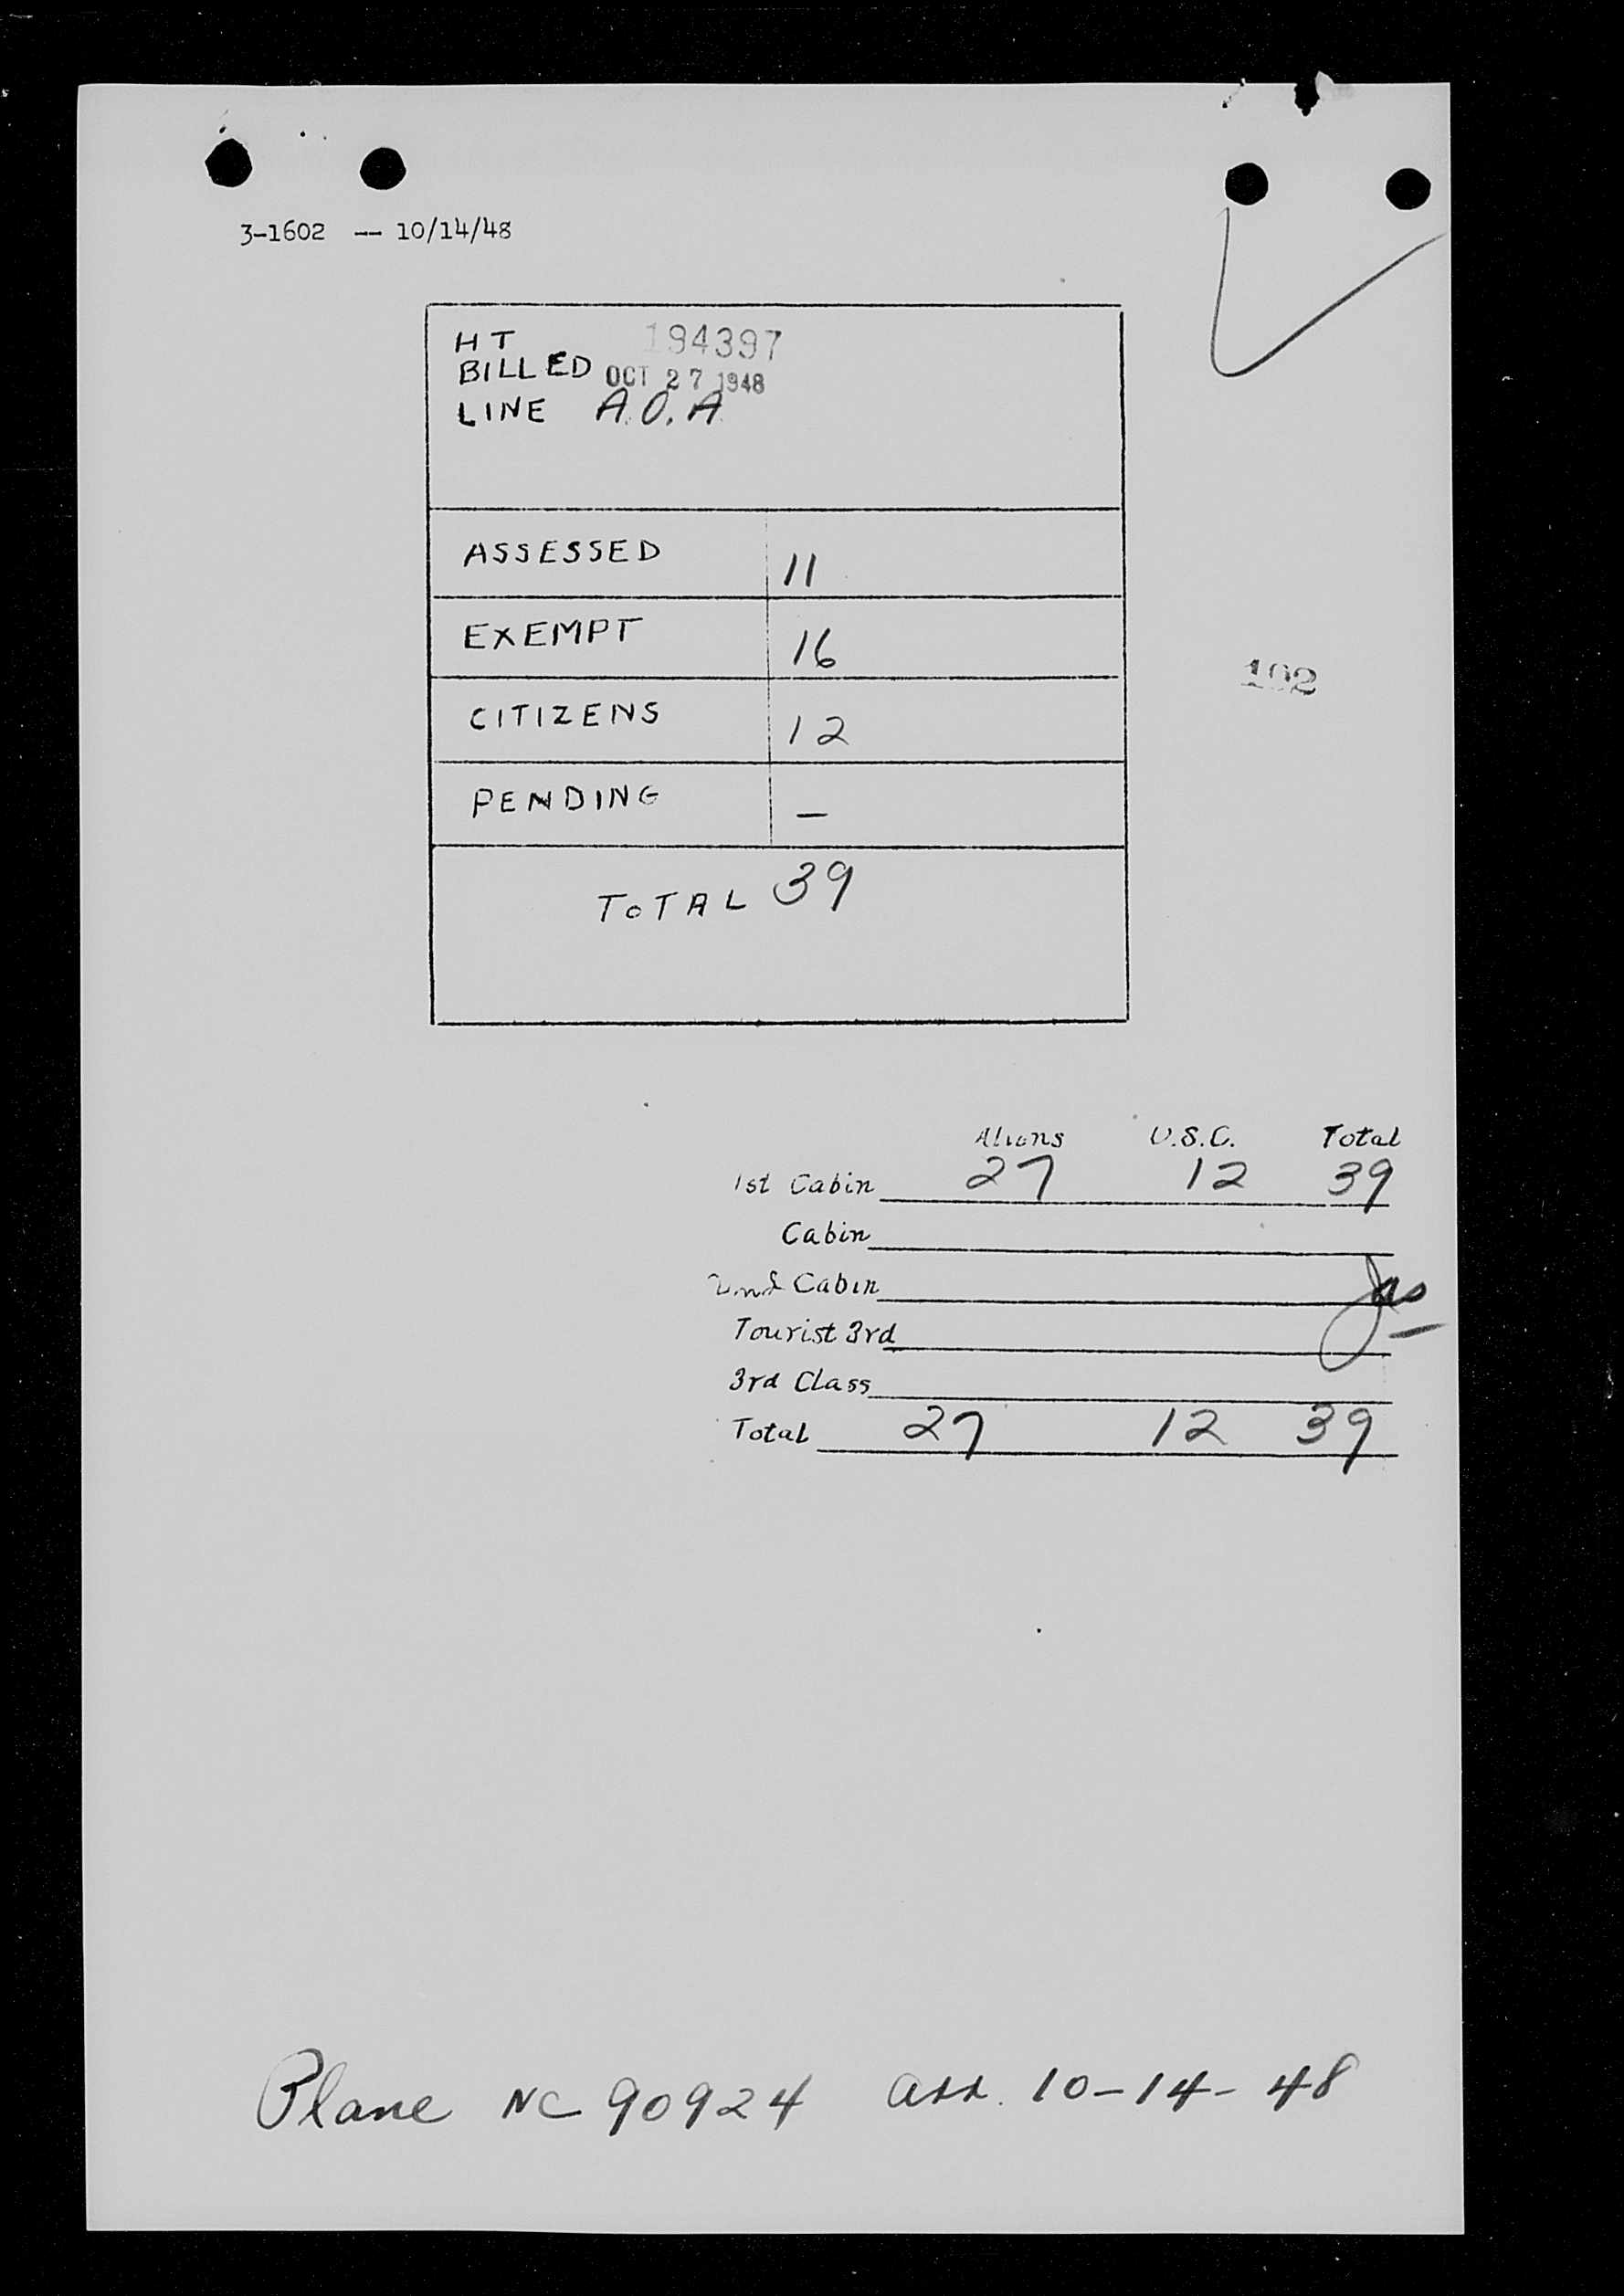 3-1602 -- 10/14/48
HT 194397
BILLED OCT 27 1948
LINE A.O.A
ASSESSED 11
EXEMPT 16
CITIZENS 12
PENDING —
TOTAL 39
102
Aliens U.S.C. Total
1st Cabin 27 12 39
Cabin
2nd Cabin
Tourist 3rd
3rd Class
Total 27 12 39
Plane NC 90924 arr. 10-14-48